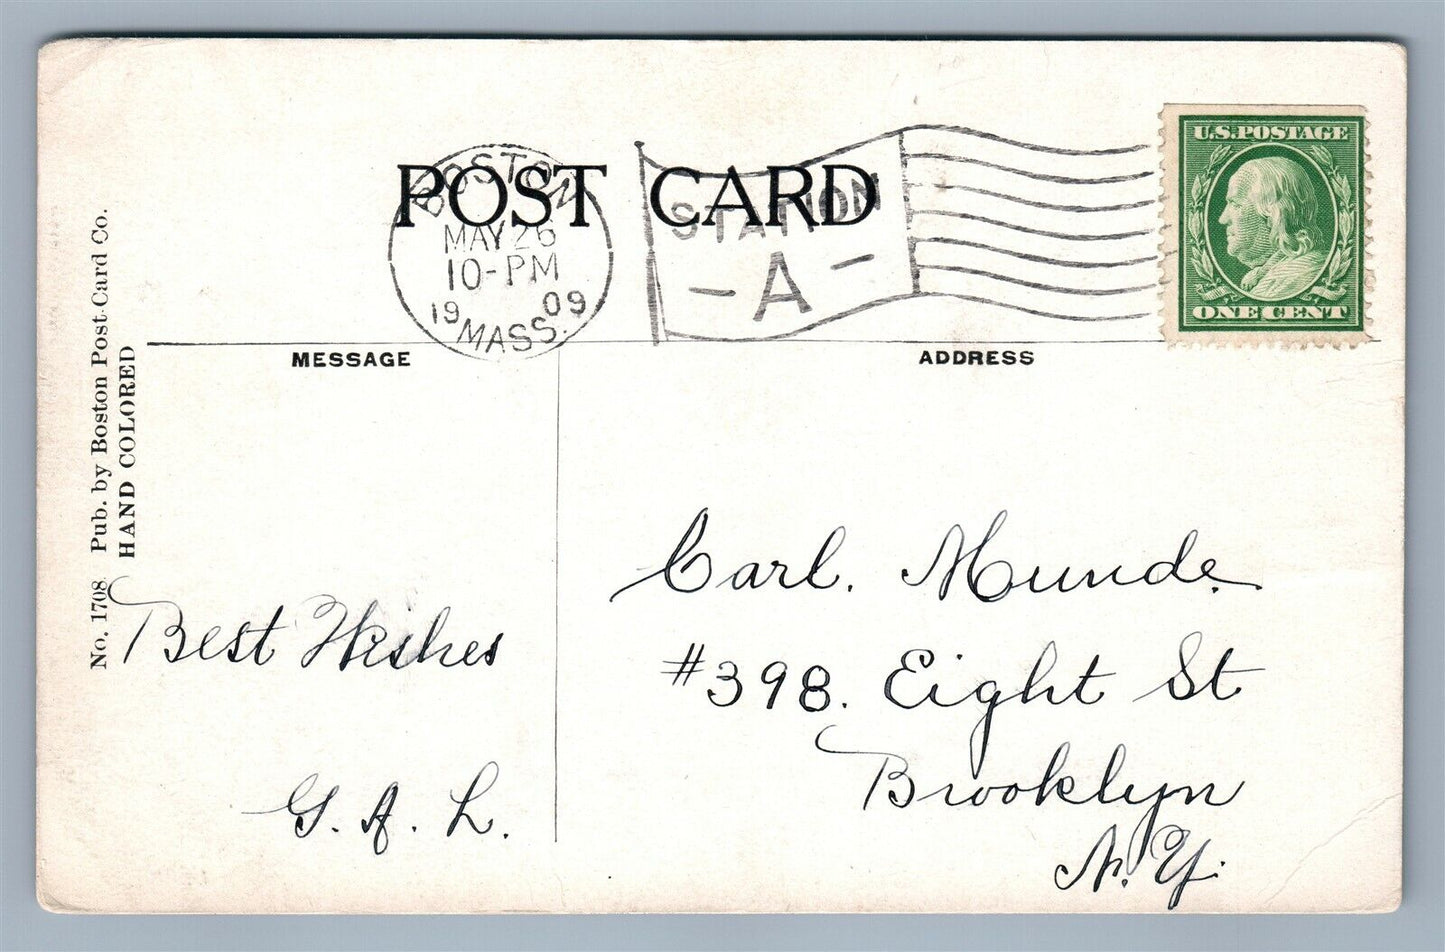 POST CARD
BOSTON
MAY 26
10-PM
19 09
MASS.
STATION
- A -
U.S. POSTAGE
ONE CENT
MESSAGE
ADDRESS
No. 1708 Pub. by Boston Post Card Co.
HAND COLORED
Best Wishes
G. A. L.
Carl. Munde.
#398. Eight St
Brooklyn
N. Y.